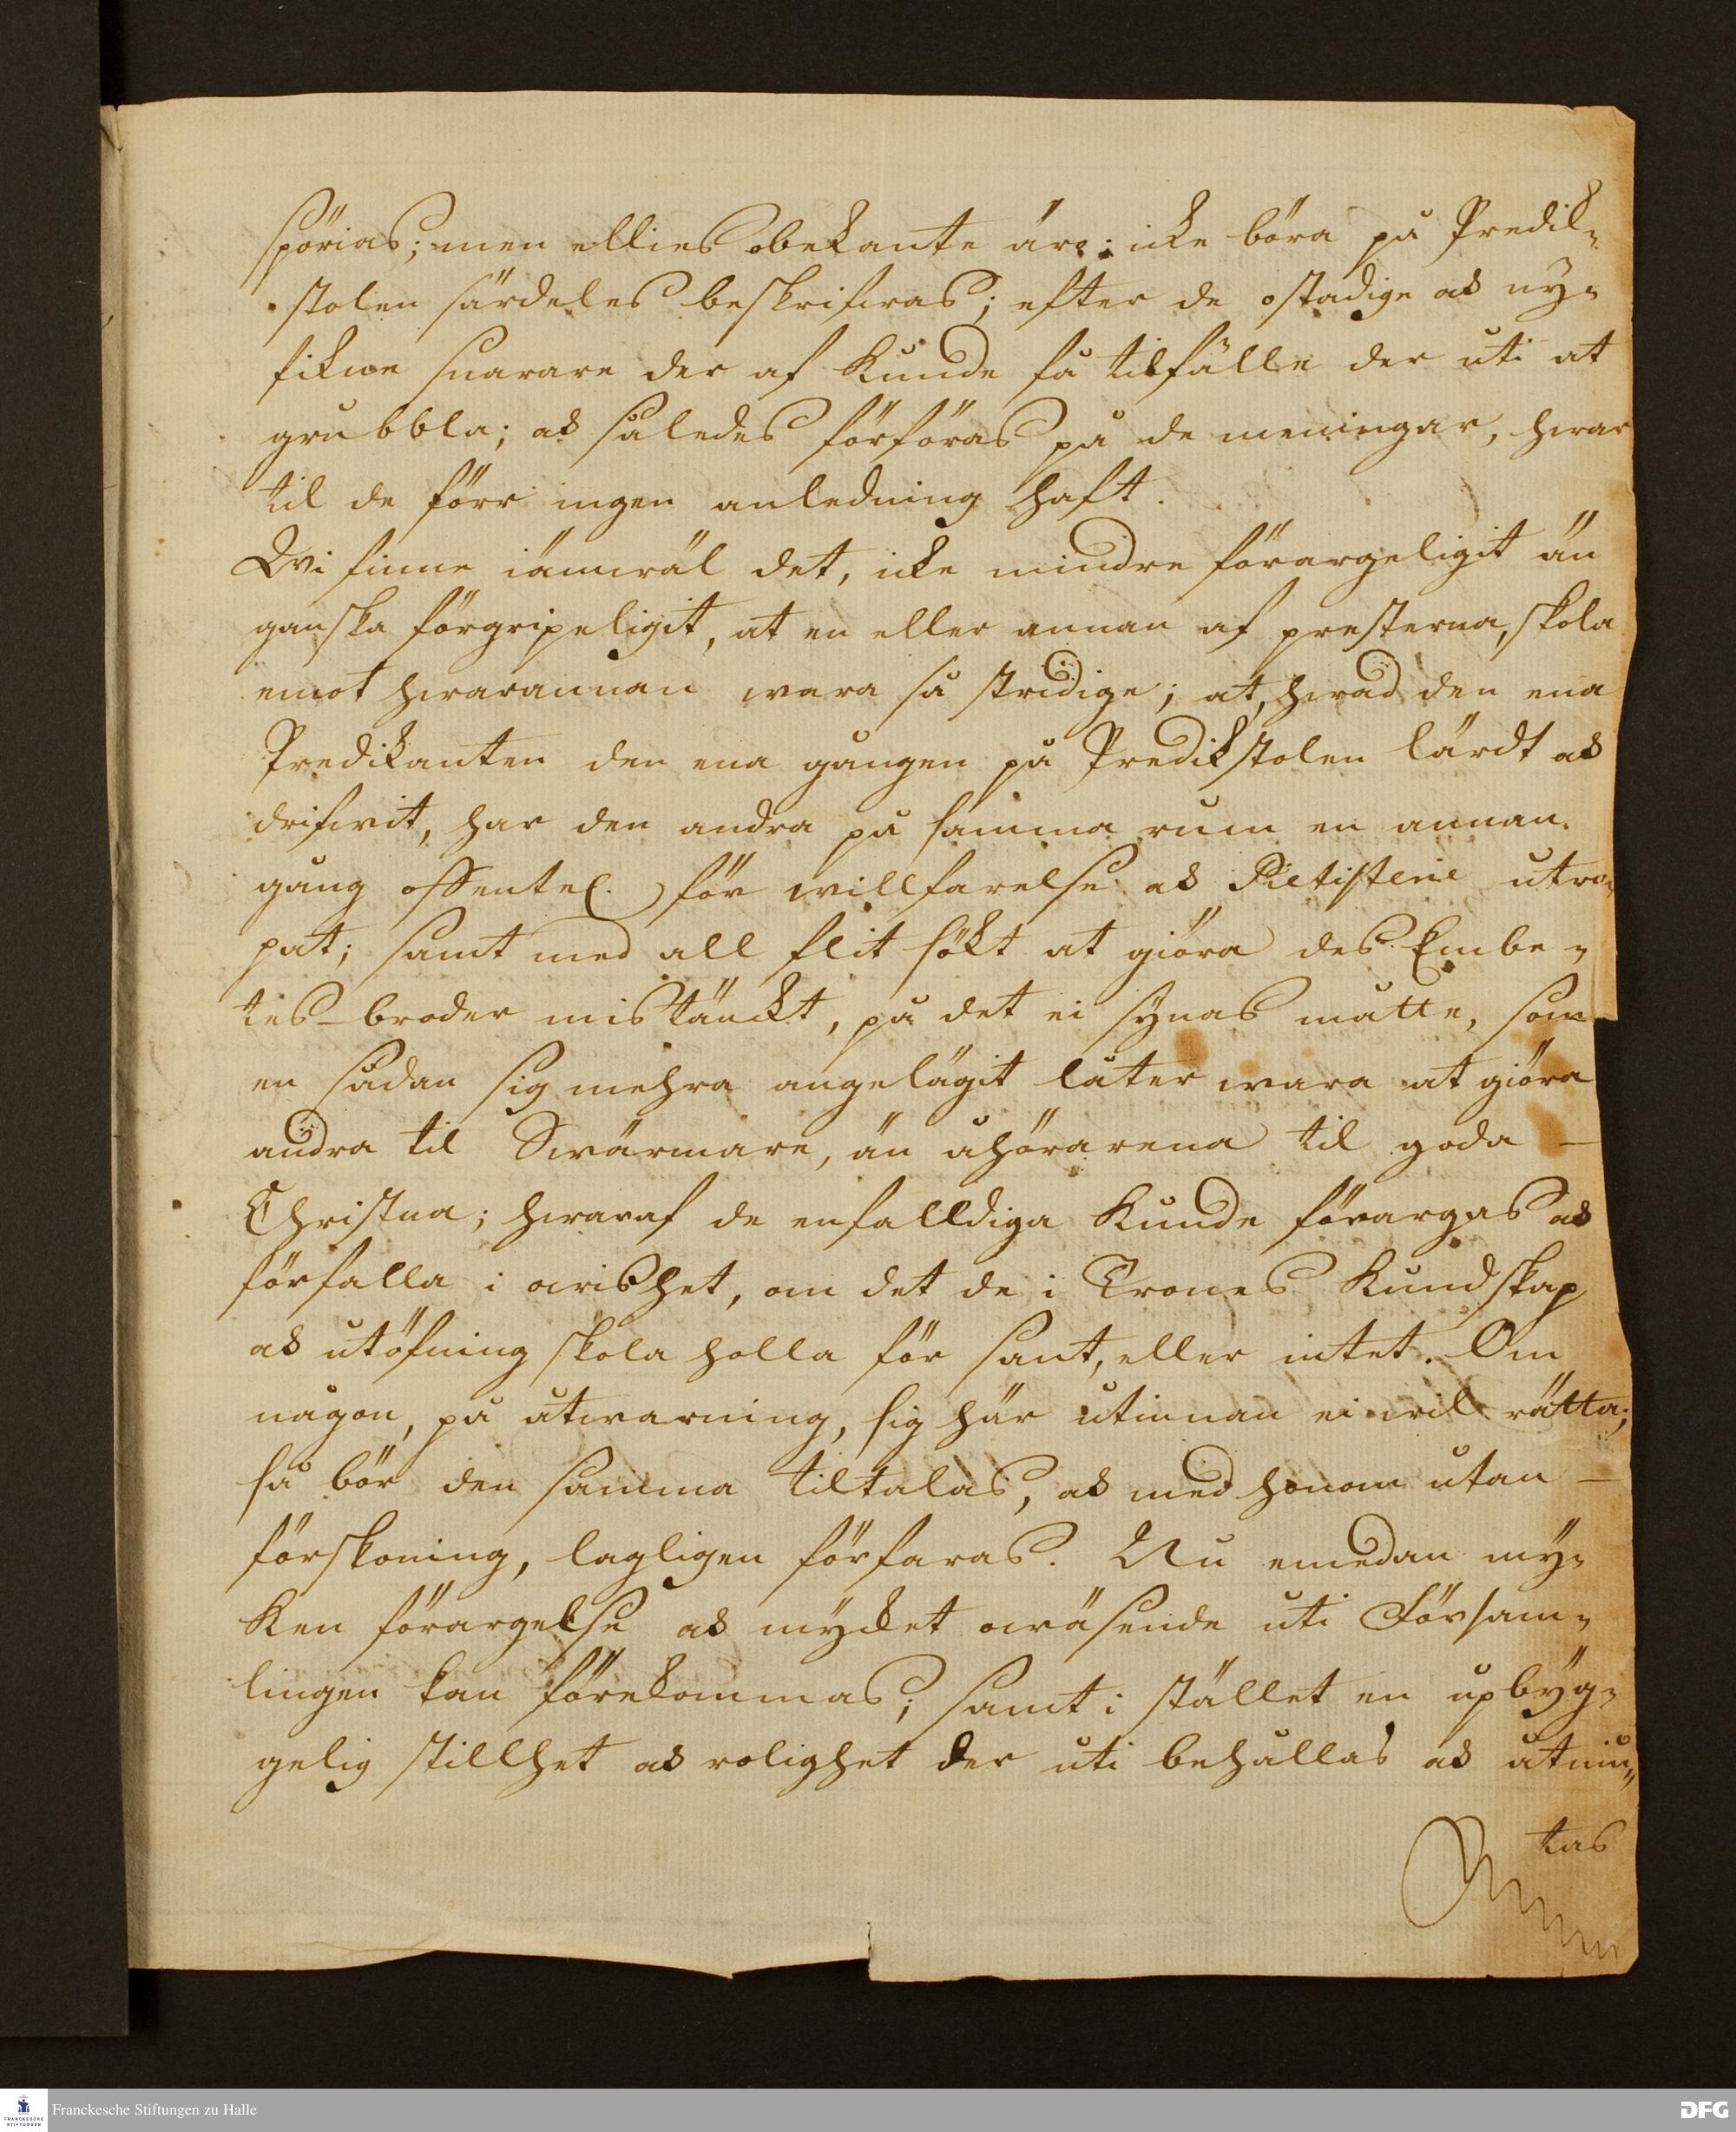 spörias; men ellies obekante äre; icke böra på Predik=
stolen särdeles beskrifwas; efter de ostadige ock ny=
fikne snarare der af kunde få tilfälle der uti at
grubbla; ock således förföras på de meningar, hwar
til de förr ingen anledning haft.
Wi finne iämwäl det, icke mindre förargeligit än
ganska förgripeligit, at en eller annan af presterna, skola
emot hwarannan wara så stridige; at, hwad den ena
Predikanten den ena gången på Predikstolen lärdt ock
drifwit, har den andra på samma rum en annan
gång offentel. för willfarelse ock Pietisterie utro=
pat; samt med all flit sökt at giöra des Embe=
tes-broder mistänckt, på det ei synas måtte, som
en sådan sig mehra angelägit låter wara at giöra
andra til Swärmare, än åhörarena til goda –
Christna; hwaraf de enfalldiga kunde förargas ock
förfalla i owishet, om det de i Trones kundskap
ock utöfning skola holla för sant, eller intet. Om
någon, på åtwarning, sig här utinnan ei wil rätta;
så bör den samma tiltalas, ock med honom utan –
förskoning, lagligen förfaras. Nu emedan my=
ken förargelse ock mycket owäsende uti Försam=
lingen kan förekommas; samt i stället en upbyg=
gelig stillhet ock rolighet der uti behållas ock åtniu=
tas
Franckesche Stiftungen zu Halle
FRANCKESCHE
STIFTUNGEN
DFG